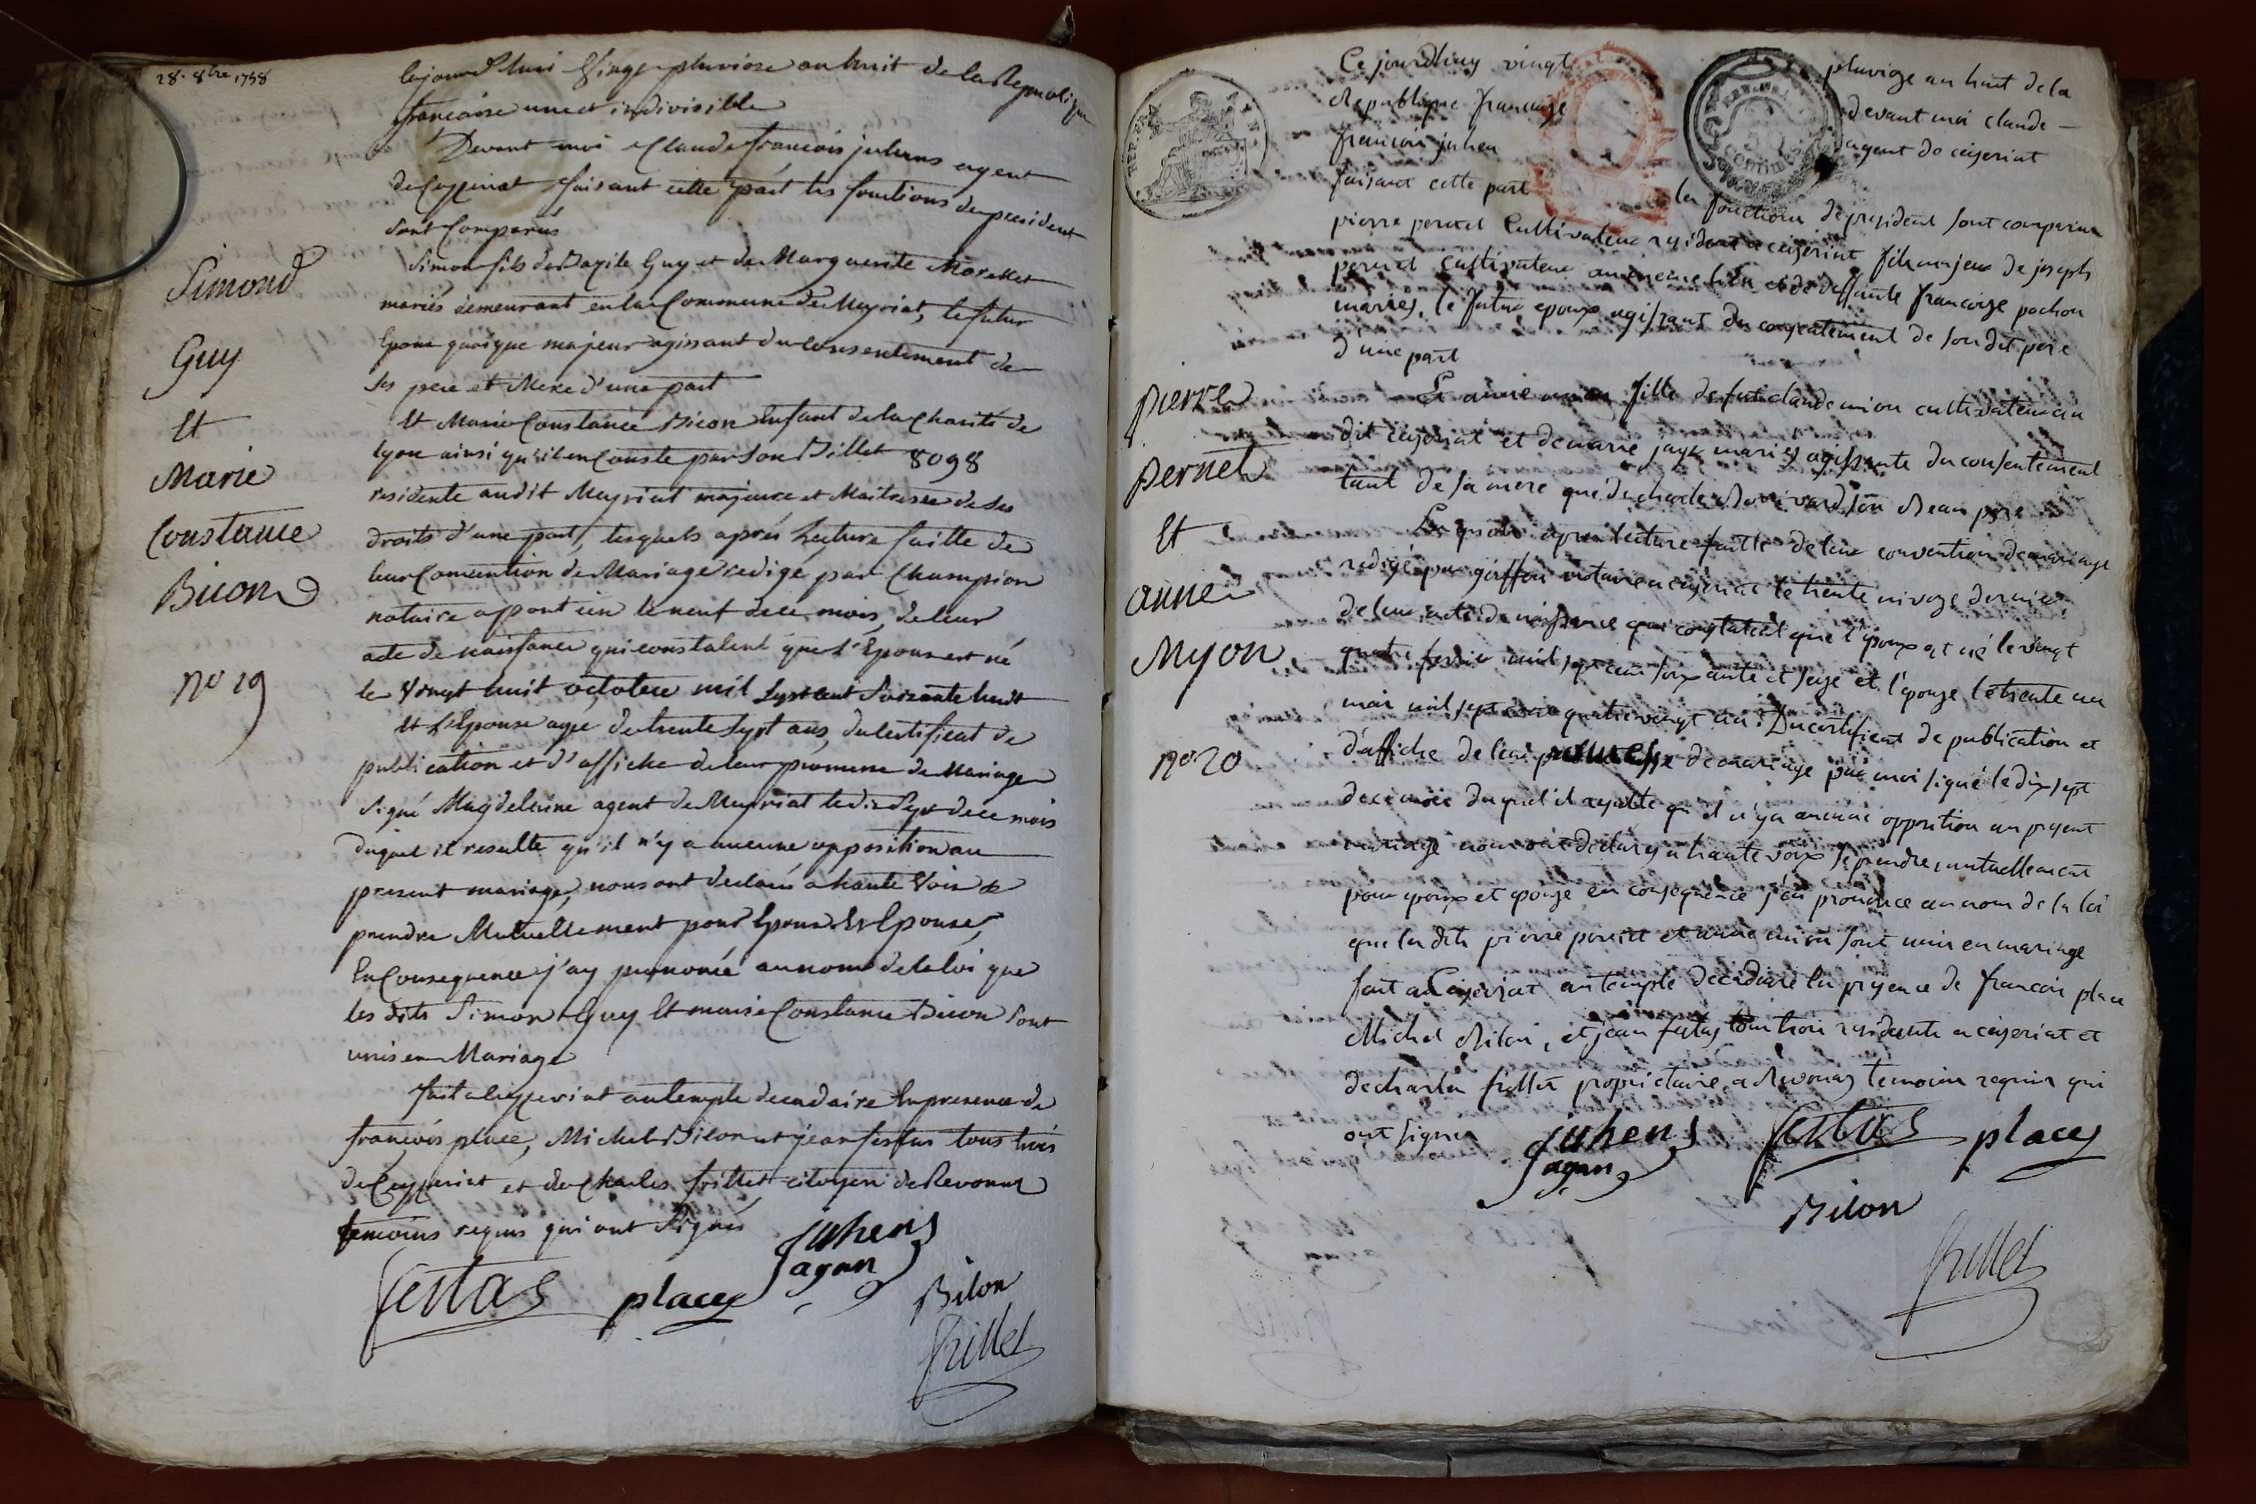 28. 8bre 1758
Cejourd'hui Vingt pluviose an huit de la Republique
francoise une et indivisible
Devant moi Claude francois juhens agent
de Ceyzeriat faisant cette part les fonctions de president
sont Comparus
Simon fils de Bazile Guy et de Marguerite Morellet
mariés demeurant en la Commune de Meyriat, le futur
Epoux quoique majeur agissant du Consentement de
ses pere et Mere d'une part
Et Marie Constance Bicon Enfant de la Charité de
lyon ainsi qu'il en Conste par Son Billet 8098
residente audit Meyriat majeure et Maitresse de ses
droits d'une part, lesquels aprés Lecture faitte de
leur Convention de Mariage redigé par Champion
notaire a pont d'ain le neuf de ce mois, de leur
acte de naissance qui constatent que l'Epoux est né
le Vingt huit octobre mil sept cent soixante huit
Et l'Epouse agee de trente sept ans, du certificat de
publication et d'affiche de leur promesse de Mariage
Signé Magdelaine agent de Meyriat le dix Sept de ce mois
duquel il resulte qu'il n'y a aucune opposition au
present mariage, nous ont declarés a haute Voix se
prendre Mutuellement pour Epoux Et Epouse,
En Consequence j'ay prononcé au nom de la loi que
les dits Simon Guy Et marie Constance Bicon Sont
unis en Mariage
fait a Ceyzeriat au temple decadaire En presence de
francois place, Michel Bilon et jean festas tous trois
de Ceyzeriat et de Charles frillet citoyen de Revonnas
temoins requis qui ont Signés
Simond
Guy
Et
Marie
Constance
Bicon
No 19
Juhens
agent
festas
place
Bilon
frillet
Ce jourdhuy vingt pluvioze an huit de la
Republique francaize devant moi claude
francois juhen agent de ceyzeriat
faisant cette part les fonctions de president sont comparus
pierre pernet Cultivateur residant a ceyzeriat fils majeur de joseph
pernet cultivateur au meme lieu et de deffunte francoize pochon
mariés, le futur epoux agissant du consentement de son dit pere
d'une part
Et anne mion fille de fut claude mion cultivateur au
dit ceyzeriat et de marie jayr mariés agissante du consentement
tant de sa mere que de charle son Beau pere
Lesquels apres lecture faitte de leur convention de mariage
redigé par notaire a ceyzeriat le trente nivoze dernier,
de leur acte de naissance qui constatent que l'epoux est né le vingt
quatre fevrier mil sept cent soixante et seize et l'epouze le trente un
mai mil sept cent quatre vingt un. Du certificat de publication et
d'affiche de leur promesse de mariage par moi signé le dix sept
de ce mois duquel il resulte qu'il n'y a aucune opposition au present
mariage nous ont declarés a haute voix se prendre mutuellement
pour epoux et epouze en consequence j'ai prononcé au nom de la loi
que les dits pierre pernet et anne mion sont unis en mariage
fait a Ceyzeriat au temple decadaire en presence de francois place
Michel Bilon, et jean festas tous trois residents a ceyzeriat et
de charles frillet proprietaire a Revonnas temoins requis qui
ont signés
pierre
pernet
Et
anne
Myon
No 20
Juhens
agent
festas
place
Bilon
frillet